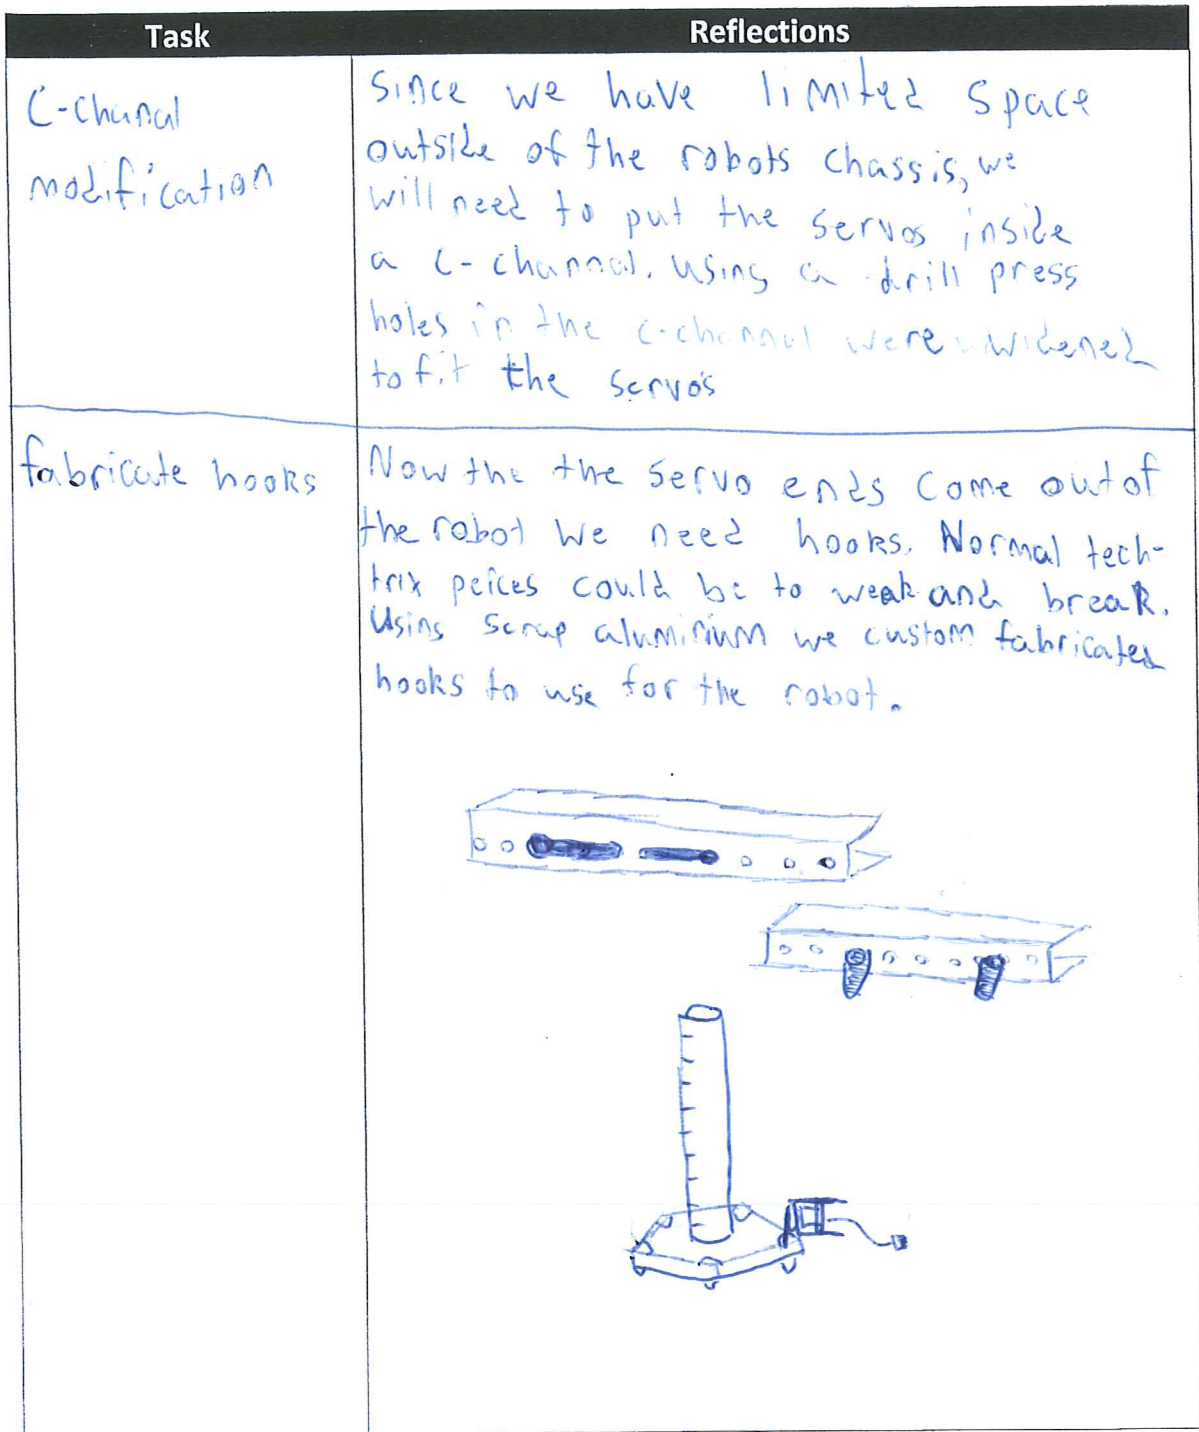 Task
Reflections
C-chanal
modification
Since we have limited space
outside of the robots chassis, we
will need to put the servos inside
a C-channal. using a drill press
holes in the c-channal were widened
to fit the servo's
fabricate hooks
Now the the servo ends come out of
the robot we need hooks. Normal tech-
trix peices could be to weak and break.
Using scrap aluminium we custom fabricated
hooks to use for the robot.